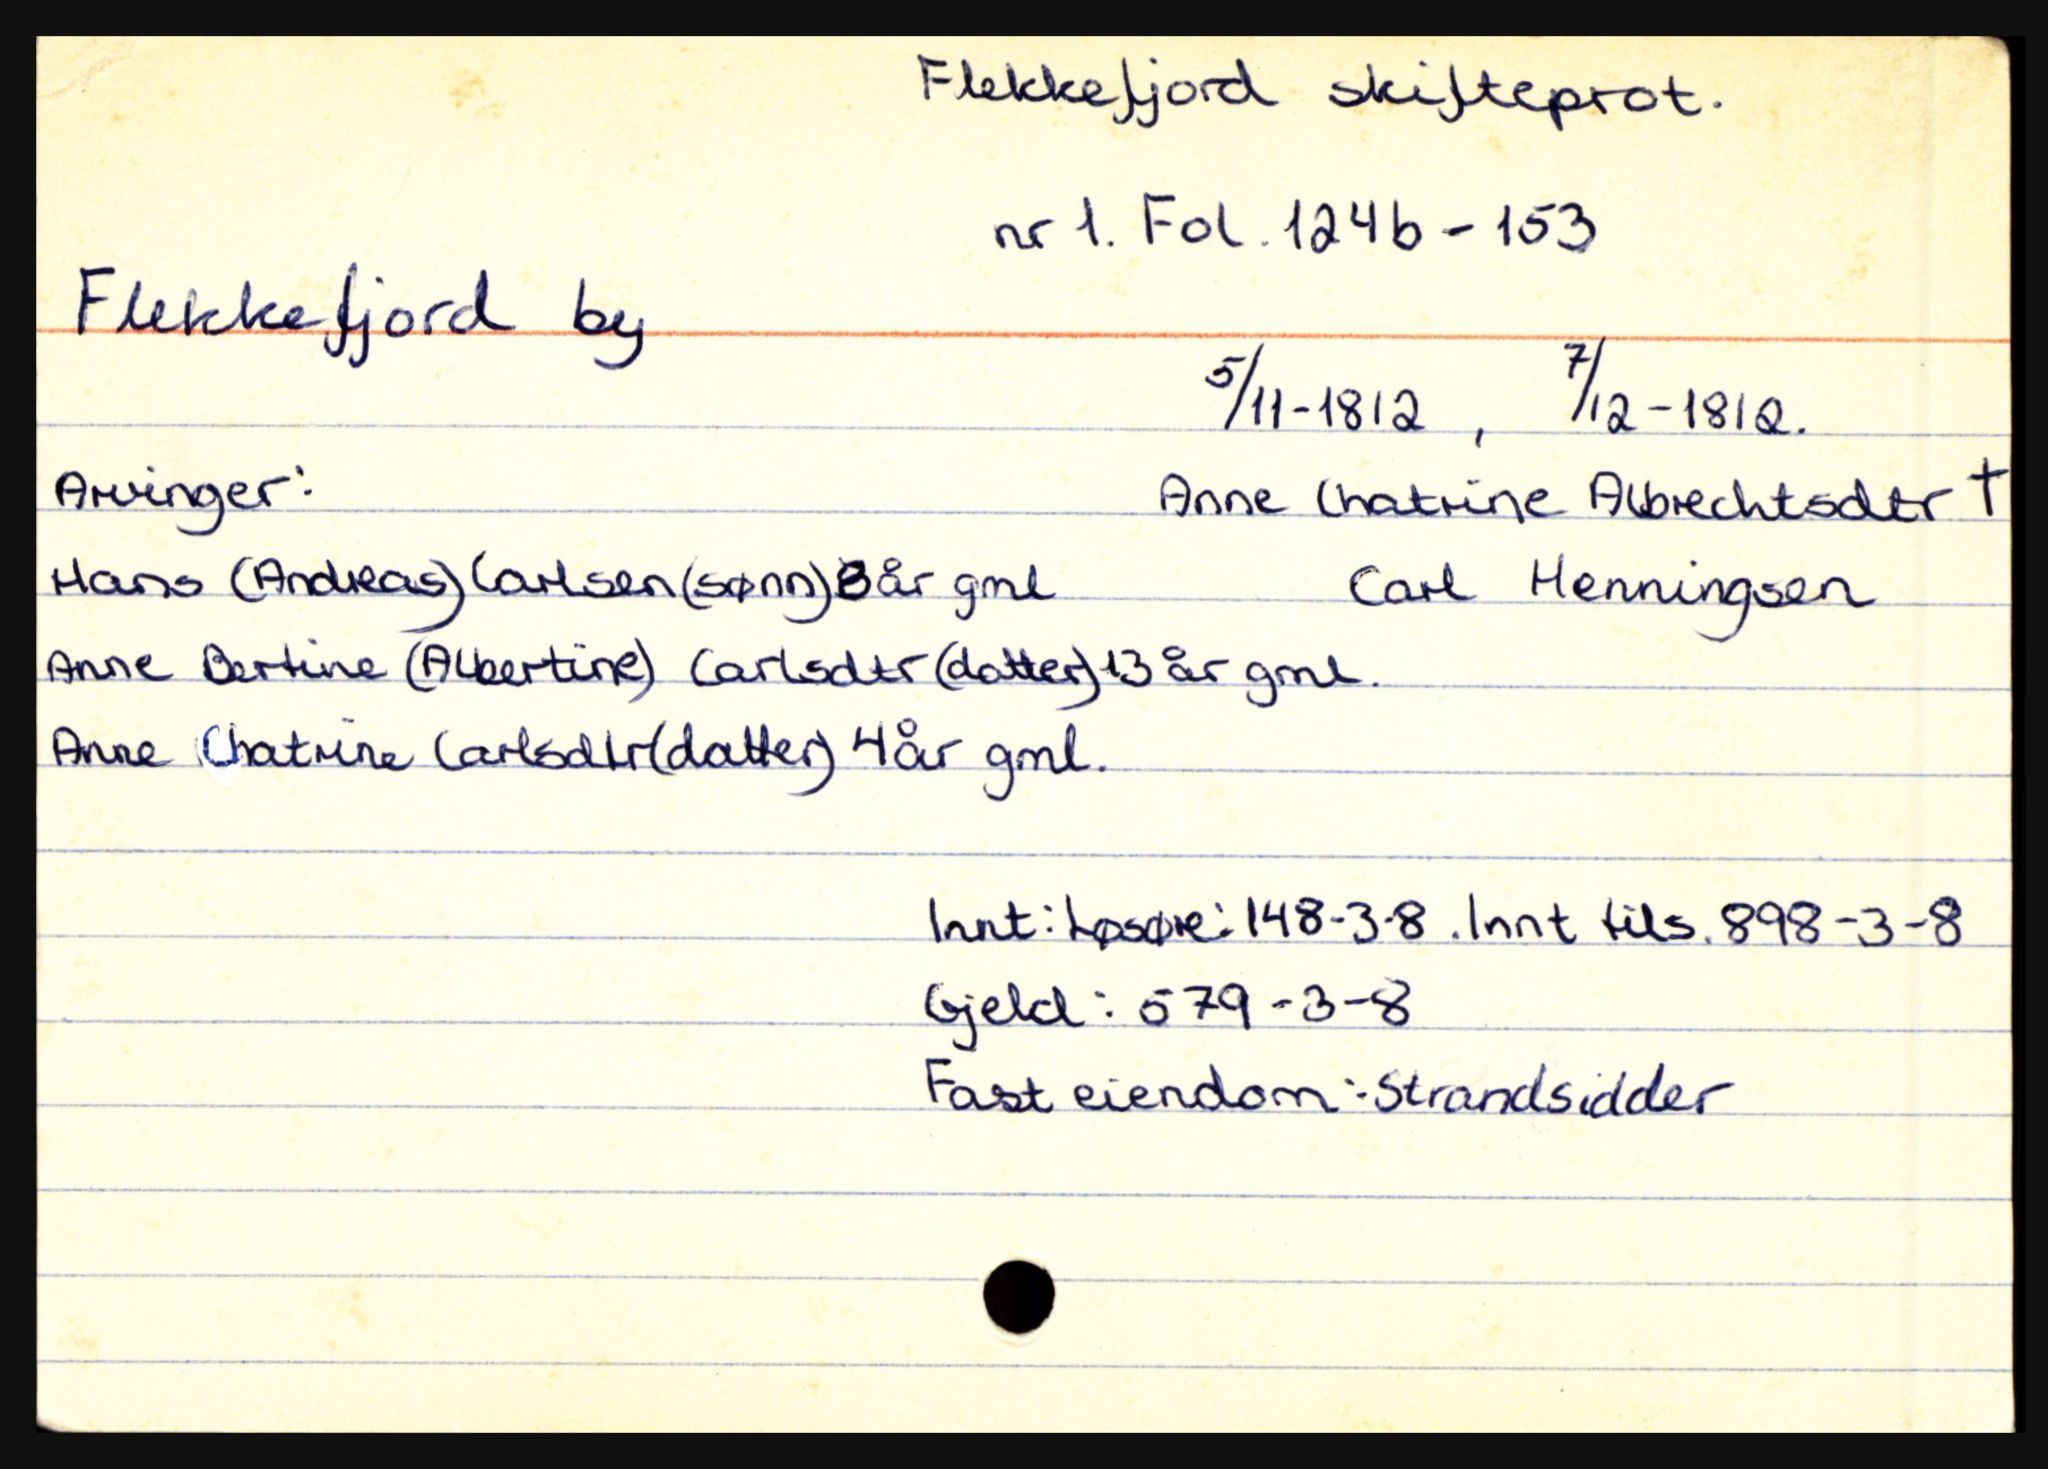 Flekkefjord skifteprot.
nr 1. Fol. 124b - 153
Flekkefjord by
5/11-1812, 7/12-1812.
Arvinger: Anne Chatrine Albrechtsdtr †
Hans (Andreas) Carlsen (sønn) 8 år gml Carl Henningsen
Anne Bertine (Albertine) Carlsdtr (datter) 13 år gml.
Anne Chatrine Carlsdtr (datter) 4 år gml.
Innt: Løsøre: 148-3-8. Innt tils. 898-3-8
Gjeld: 579-3-8
Fast eiendom: Strandsidder